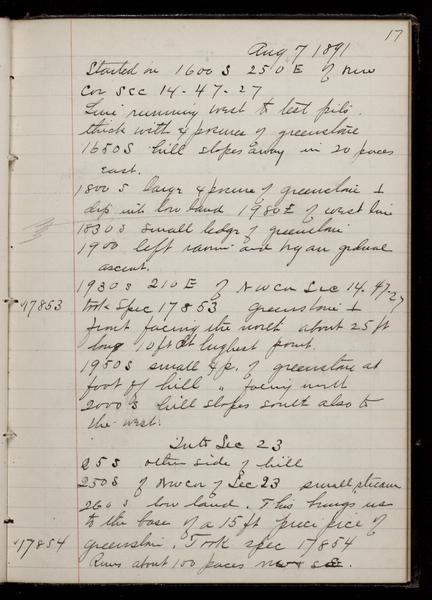 17
Aug 7 1891
Started on 1600 S 250 E of NW
Cor Sec 14-47-27
Line running west to test pits.
thick with exposures of greenstone
1650 S hill slopes away in 20 paces
east.
1800 S large exposure of greenstone &
dip into low land 1980 E of west line
1830 S small ledge of greenstone
1900 left ravine and began gradual
ascent.
1930 S 210 E of NW Cor Sec 14-47-27
17853 took Spec 17853 Greenstone &
front facing the north about 25 ft
long 10 ft at highest point.
1950 S small exp. of greenstone at
foot of hill, facing north
2000 S hill slopes south also to
the west.
Into Sec 23
25 S other side of hill
250 S of NW cor of Sec 23 small stream
260 S low land. This brings us
to the base of a 15 ft precipice of
17854 greenstone. Took spec 17854
Runs about 100 paces